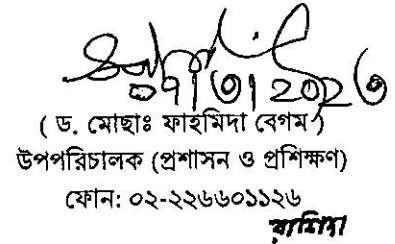 ০৭/৩/২০২৩
( ড. মোছাঃ ফাহমিদা বেগম )
উপপরিচালক (প্রশাসন ও প্রশিক্ষণ)
ফোন: ০২-২২৬৬০১১২৬
রাশিদা